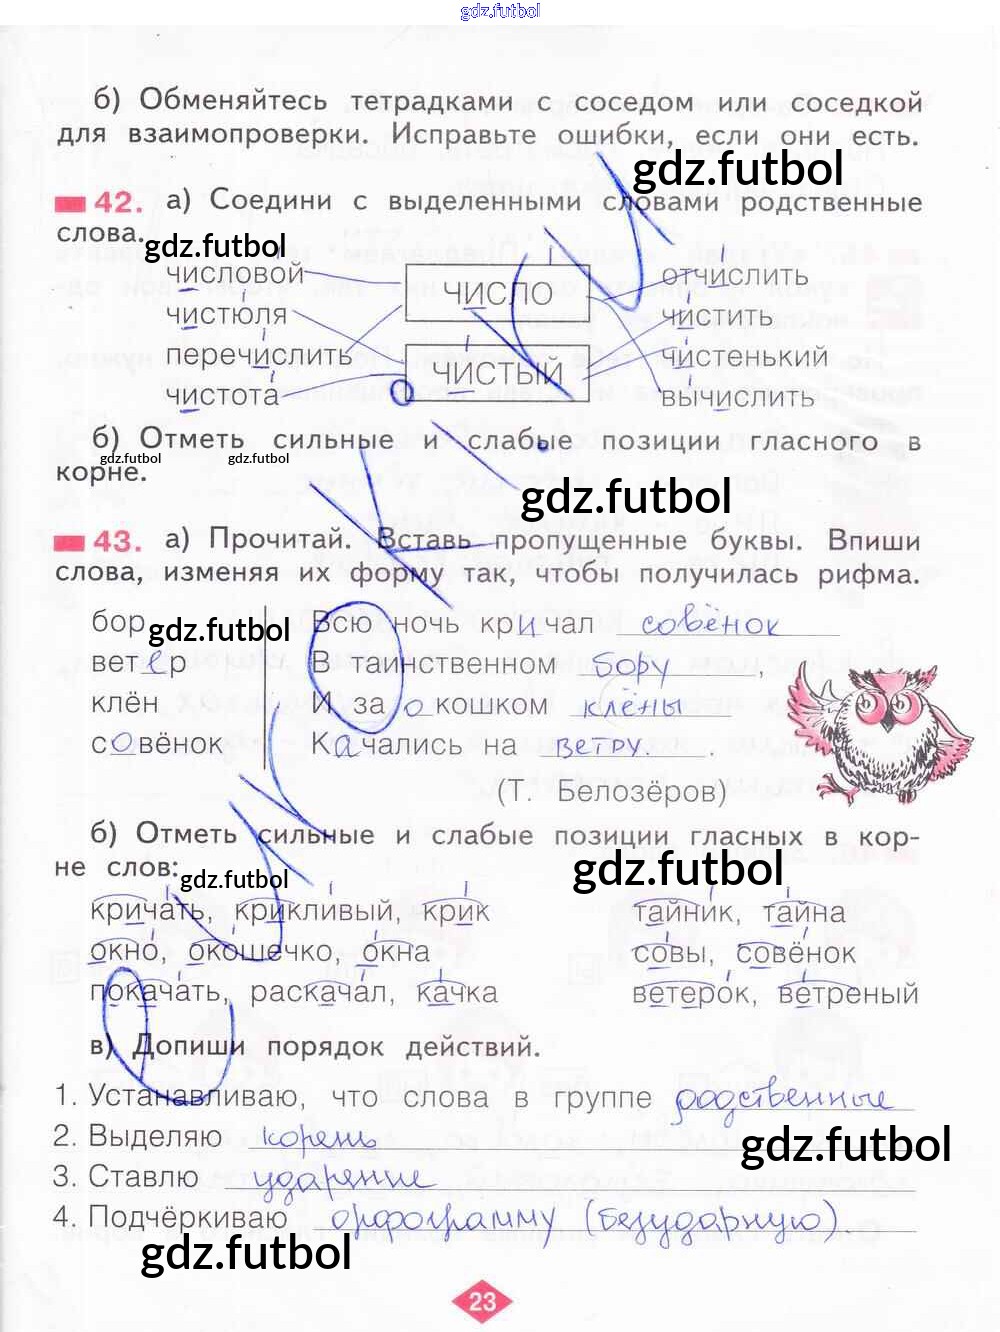 gdz.futbol
б) Обменяйтесь тетрадками с соседом или соседкой
для взаимопроверки. Исправьте ошибки, если они есть.
gdz.futbol
42. а) Соедини с выделенными словами родственные
слова.
gdz.futbol
числовой ЧИСЛО отчислить
чистюля чистить
перечислить ЧИСТЫЙ чистенький
чистота вычислить
б) Отметь сильные и слабые позиции гласного в
gdz.futbol gdz.futbol
корне.
gdz.futbol
43. а) Прочитай. Вставь пропущенные буквы. Впиши
слова, изменяя их форму так, чтобы получилась рифма.
бор Всю ночь кричал совёнок
gdz.futbol
ветер В таинственном бору,
клён И за окошком клёны
совёнок Качались на ветру.
(Т. Белозёров)
б) Отметь сильные и слабые позиции гласных в кор-
не слов:
gdz.futbol
gdz.futbol
кричать, крикливый, крик тайник, тайна
окно, окошечко, окна совы, совёнок
покачать, раскачал, качка ветерок, ветреный
в) Допиши порядок действий.
1. Устанавливаю, что слова в группе родственные
2. Выделяю корень
gdz.futbol
3. Ставлю ударение
4. Подчёркиваю орфограмму (безударную)
gdz.futbol
23